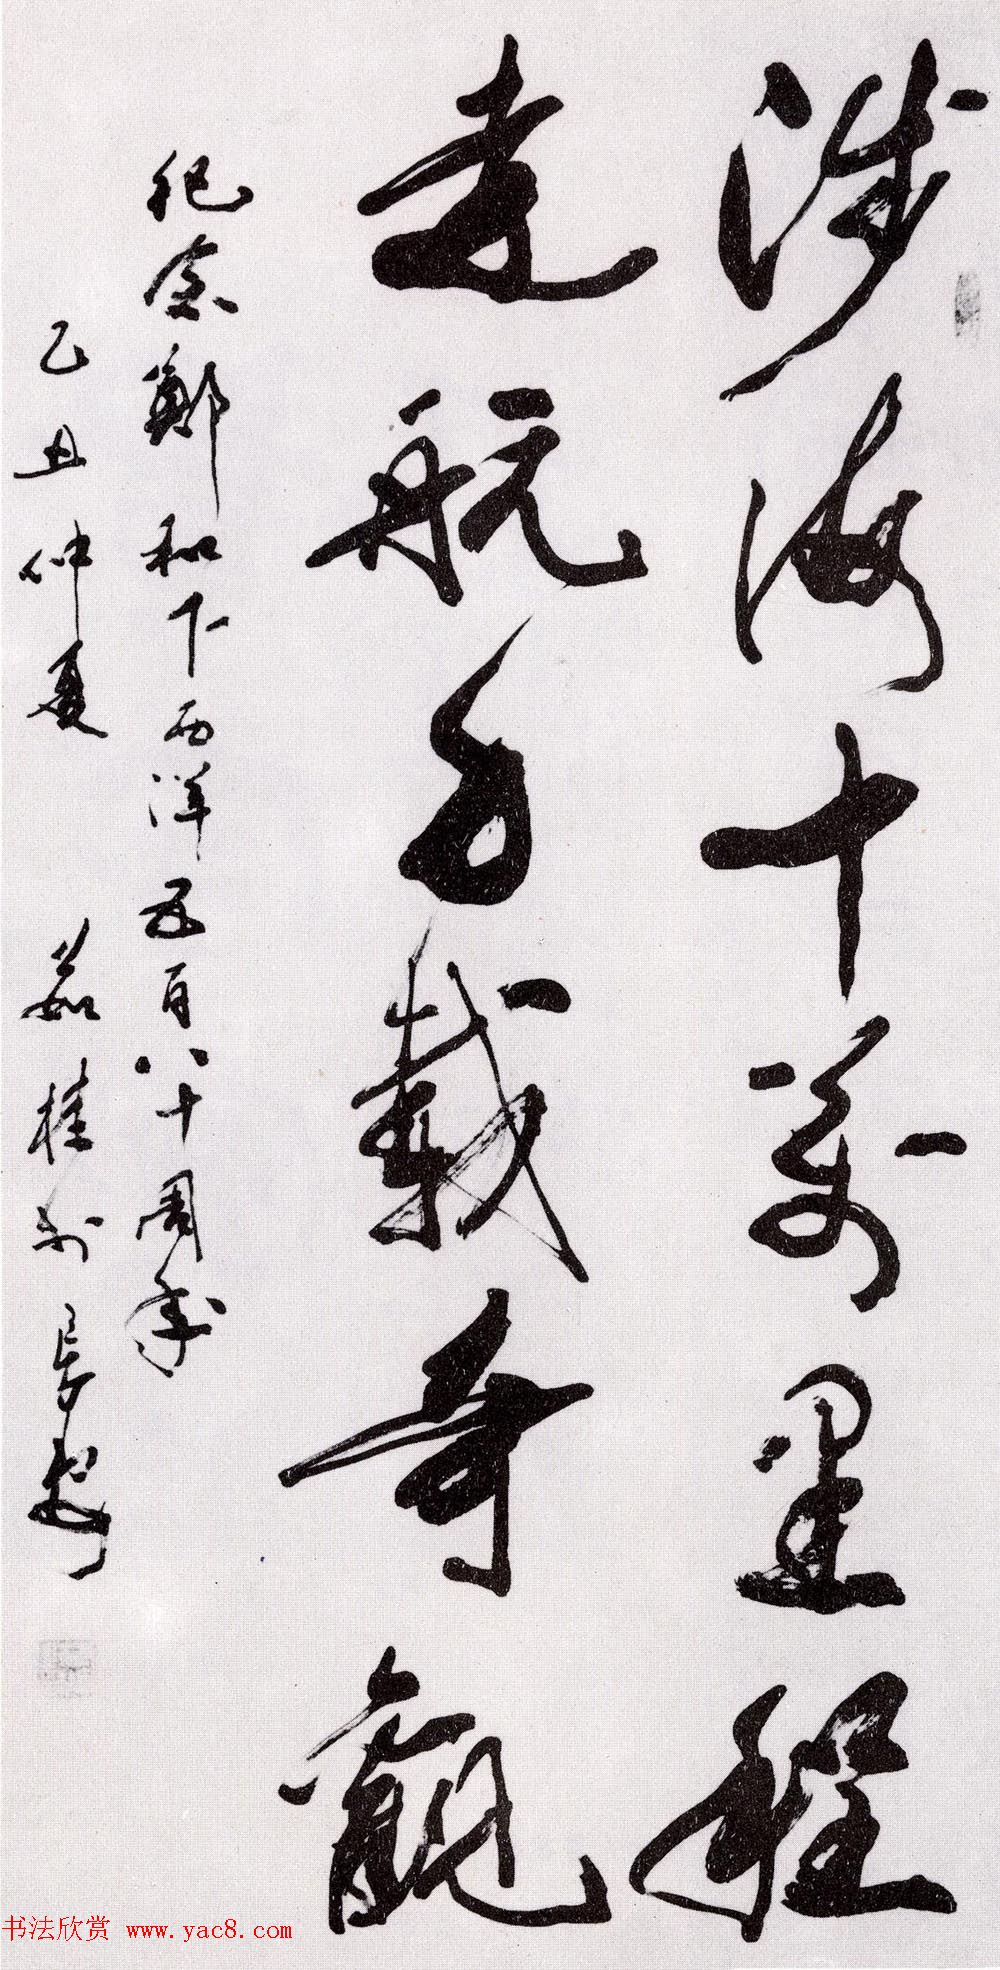 涉海十萬里程
走航載奇觀
紀念鄭和下西洋五百八十周年
乙丑仲夏 茹桂於長安
书法欣赏 www.yac8.com